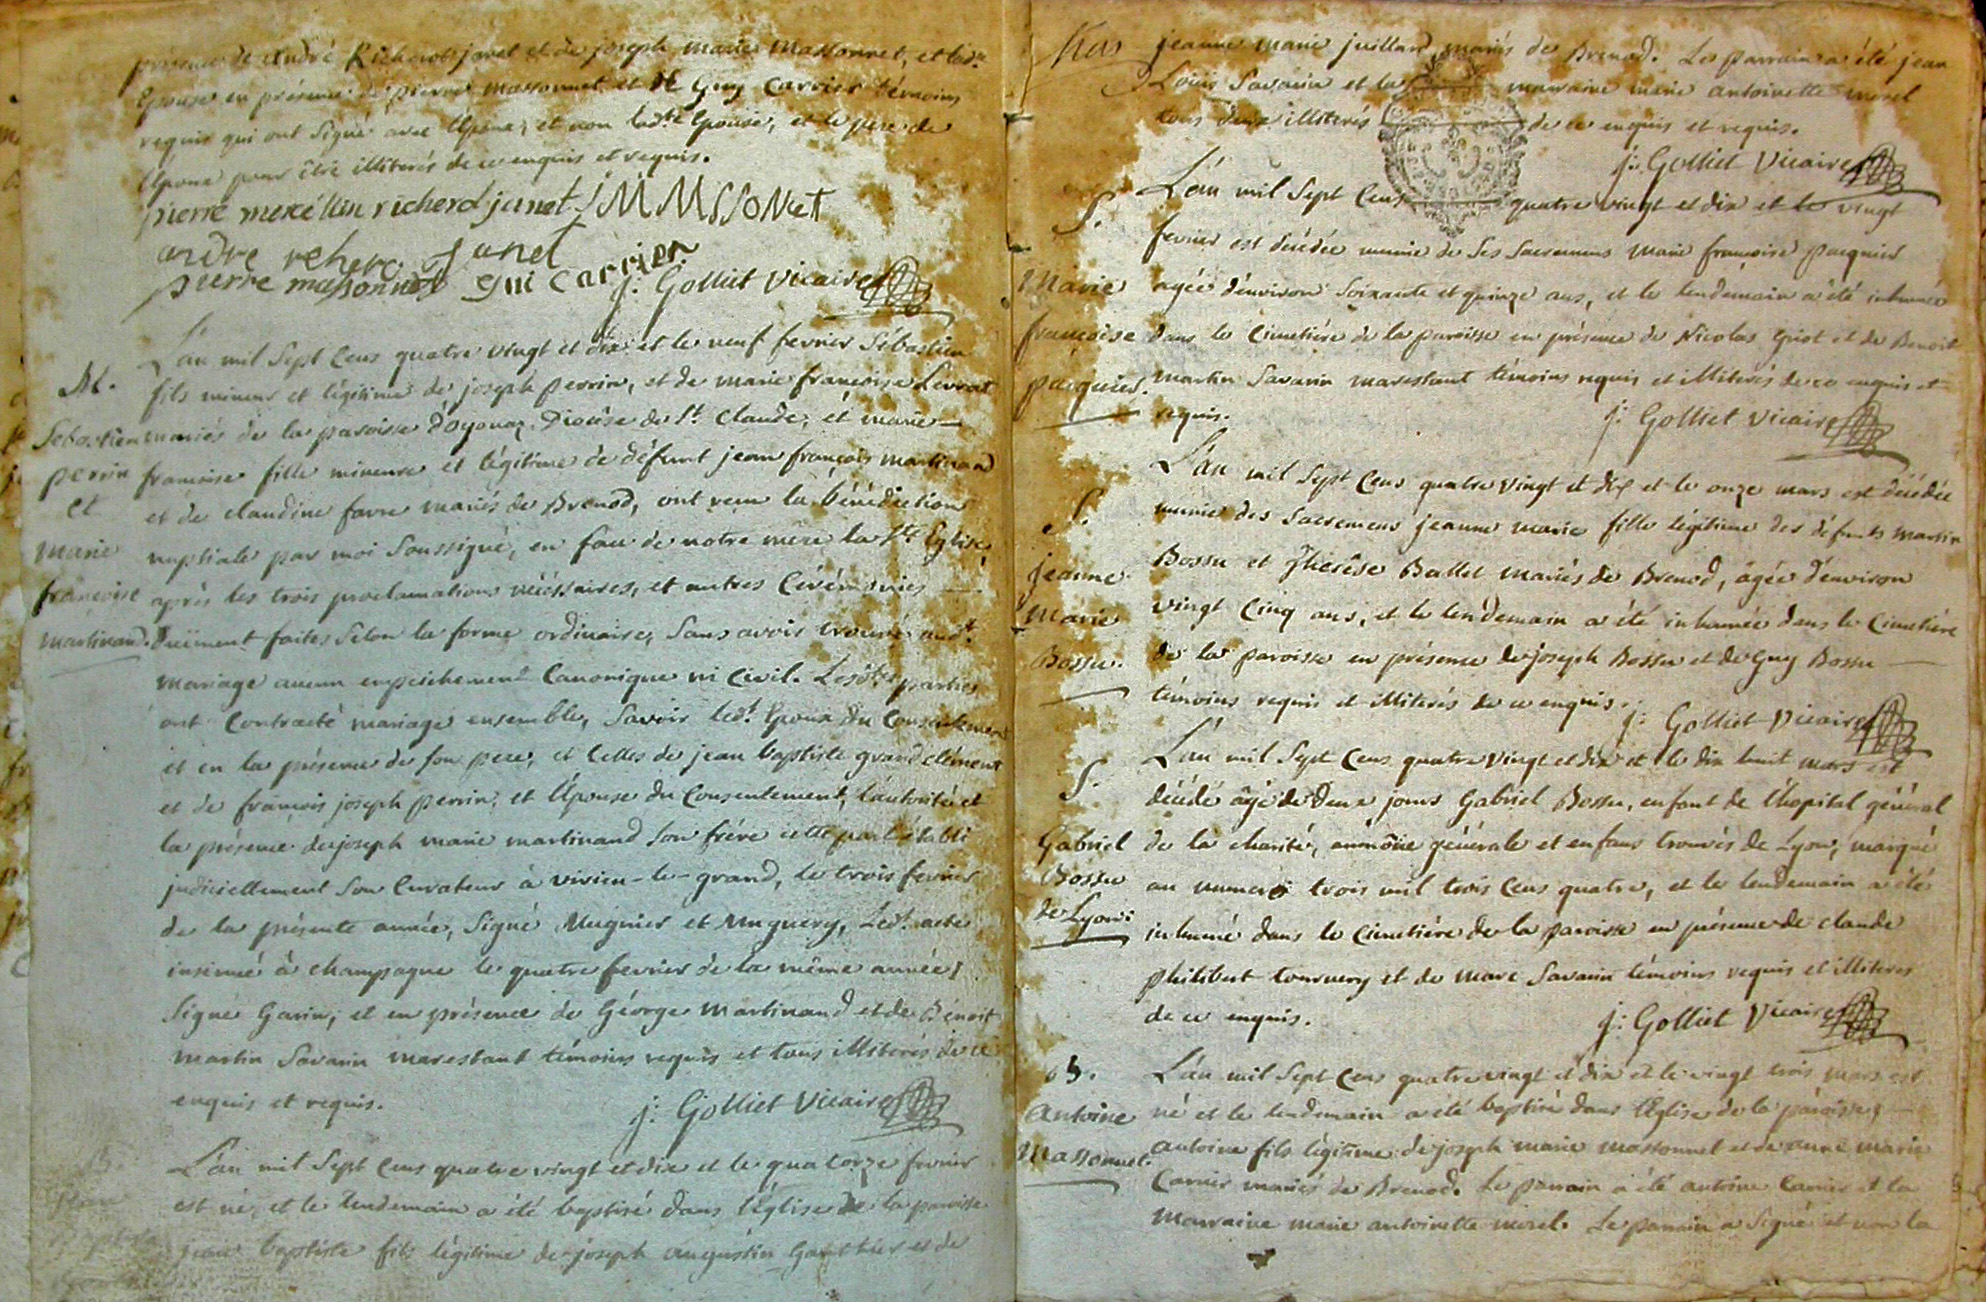 présence de André Richerot janet et de joseph marie Massonnet, et lad.e
Epouse en présence de pierre massonnet et de Guy Carrier témoins
requis qui ont signé avec l'Epoux, et non lad.te Epouse, et le pere de
l'Epoux pour être illiterés de ce enquis et requis.
pierre mercéllin richerd janet JMMSSONeT
andre reherc janet
pierre massonnet gui carrier
j: Golliet Vicaire
L'an mil Sept Cens quatre vingt et dix et le neuf fevrier Sébastien
M. fils mineur et légitime de joseph perrin, et de marie françoise Levrat
Sebastien mariés de la paroisse d'oyonaz Diocèse de St. Claude, et marie
perrin françoise fille mineure et légitime de défunt jean françois martinand
et et de claudine favre mariés de Brenod, ont reçu la bénédiction
marie nuptiale par moi Soussigné, en face de notre mere la Ste Eglise,
françoise après les trois proclamations nécéssaires, et autres Cérémonies
martinand. Duëment faites Selon la forme ordinaire, Sans avoir trouvé aud.t
mariage aucun empêchement Canonique ni Civil. Lesd.tes parties
ont Contracté mariage ensemble, Savoir led.t Epoux du Consentement
et en la présence de son pere, et celles de jean baptiste grandclément
et de françois joseph perrin, et l'Epouse du Consentement, l'autorité et
la présence de joseph marie martinand Son frére cette part établi
judiciellement Son Curateur à virieu-le-grand, le trois fevrier
de la présente année, Signé Mugnier et Muguery, Led.t acte
insinué à champagne le quatre fevrier de la même année,
Signé Garin, et en présence de Géorge martinand et de Bénoit
martin Savarin marestant témoins requis et tous illiterés de ce
enquis et requis.
j: Golliet Vicaire
B. L'an mil Sept Cens quatre vingt et dix et le quatorze fevrier
jean est né, et le lendemain a été baptisé dans l'Église de la paroisse
jean baptiste fils légitime de joseph augustin Gauthier et de
jeanne marie juillard mariés de Brenod. Le parrain a été jean
Louis Savarin et la marraine marie antoinette morel
tous deux illiterés de ce enquis et requis.
j: Golliet Vicaire
L'an mil Sept Cens quatre vingt et dix et le vingt
S. fevrier est décédée munie de Ses Sacremens marie françoise pacquier
Marie agée d'environ Soixante et quinze ans, et le lendemain a été inhumée
françoise dans le Cimetiére de la paroisse en présence de Nicolas Griot et de Benoit
pacquier. martin Savarin marestant témoins requis et illiterés de ce enquis et
requis.
j: Golliet Vicaire
L'an mil Sept Cens quatre vingt et dix et le onze mars est décédée
S. munie des Sacremens jeanne marie fille légitime des défunts martin
jeanne Bossu et Therêse Ballet mariés de Brenod, âgée d'environ
Marie vingt Cinq ans, et le lendemain a été inhumée dans le Cimetiére
Bossu. de la paroisse en présence de joseph Bossu et de Guy Bossu
témoins requis et illiterés de ce enquis.
j: Golliet Vicaire
L'an mil Sept Cens quatre vingt et dix et le dix huit mars est
S. décédé âgé de Deux jours Gabriel Bossu, enfant de l'hopital général
Gabriel de la charité, aumône générale et enfans trouvés de Lyon, marqué
Bossu au numero trois mil trois Cens quatre, et le lendemain a été
de Lyon: inhumé dans le Cimetiére de la paroisse en présence de claude
philibert tournery et de marc Savarin témoins requis et illiteres
de ce enquis.
j: Golliet Vicaire
B. L'an mil Sept Cens quatre vingt et dix et le vingt trois mars est
Antoine né et le lendemain a été baptisé dans l'Eglise de la paroisse,
Massonnet. antoine fils légitime de joseph marie massonnet et de anne marie
Carrier mariés de Brenod. Le parrain a été antoine Carrier et la
marraine marie antoinette morel. Le parrain a signé et non la